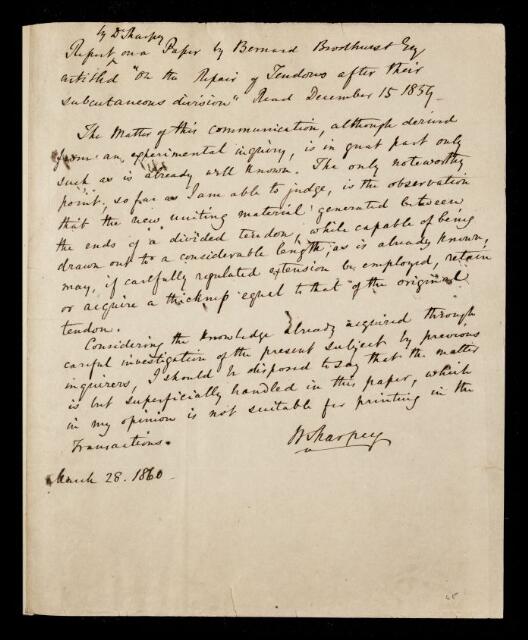 by Dr Sharpey
Report on a Paper by Bernard Brodhurst Esq
entitled "On the Repair of Tendons after their
subcutaneous division" Read December 15 1859.
The matter of this communication, although derived
from an experimental inquiry, is in great part only
such as is already well known. The only noteworthy
point, so far as I am able to judge, is the observation
that the new uniting material generated between
the ends of a divided tendon, while capable of being
drawn out to a considerable length, as is already known,
may, if carefully regulated extension be employed, retain
or acquire a thickness equal to that of the original
tendon.
Considering the knowledge already acquired through
careful investigation of the present subject by previous
inquirers, I should be disposed to say that the matter
is but superficially handled in this paper, which
in my opinion is not suitable for printing in the
Transactions.
W Sharpey
March 28. 1860